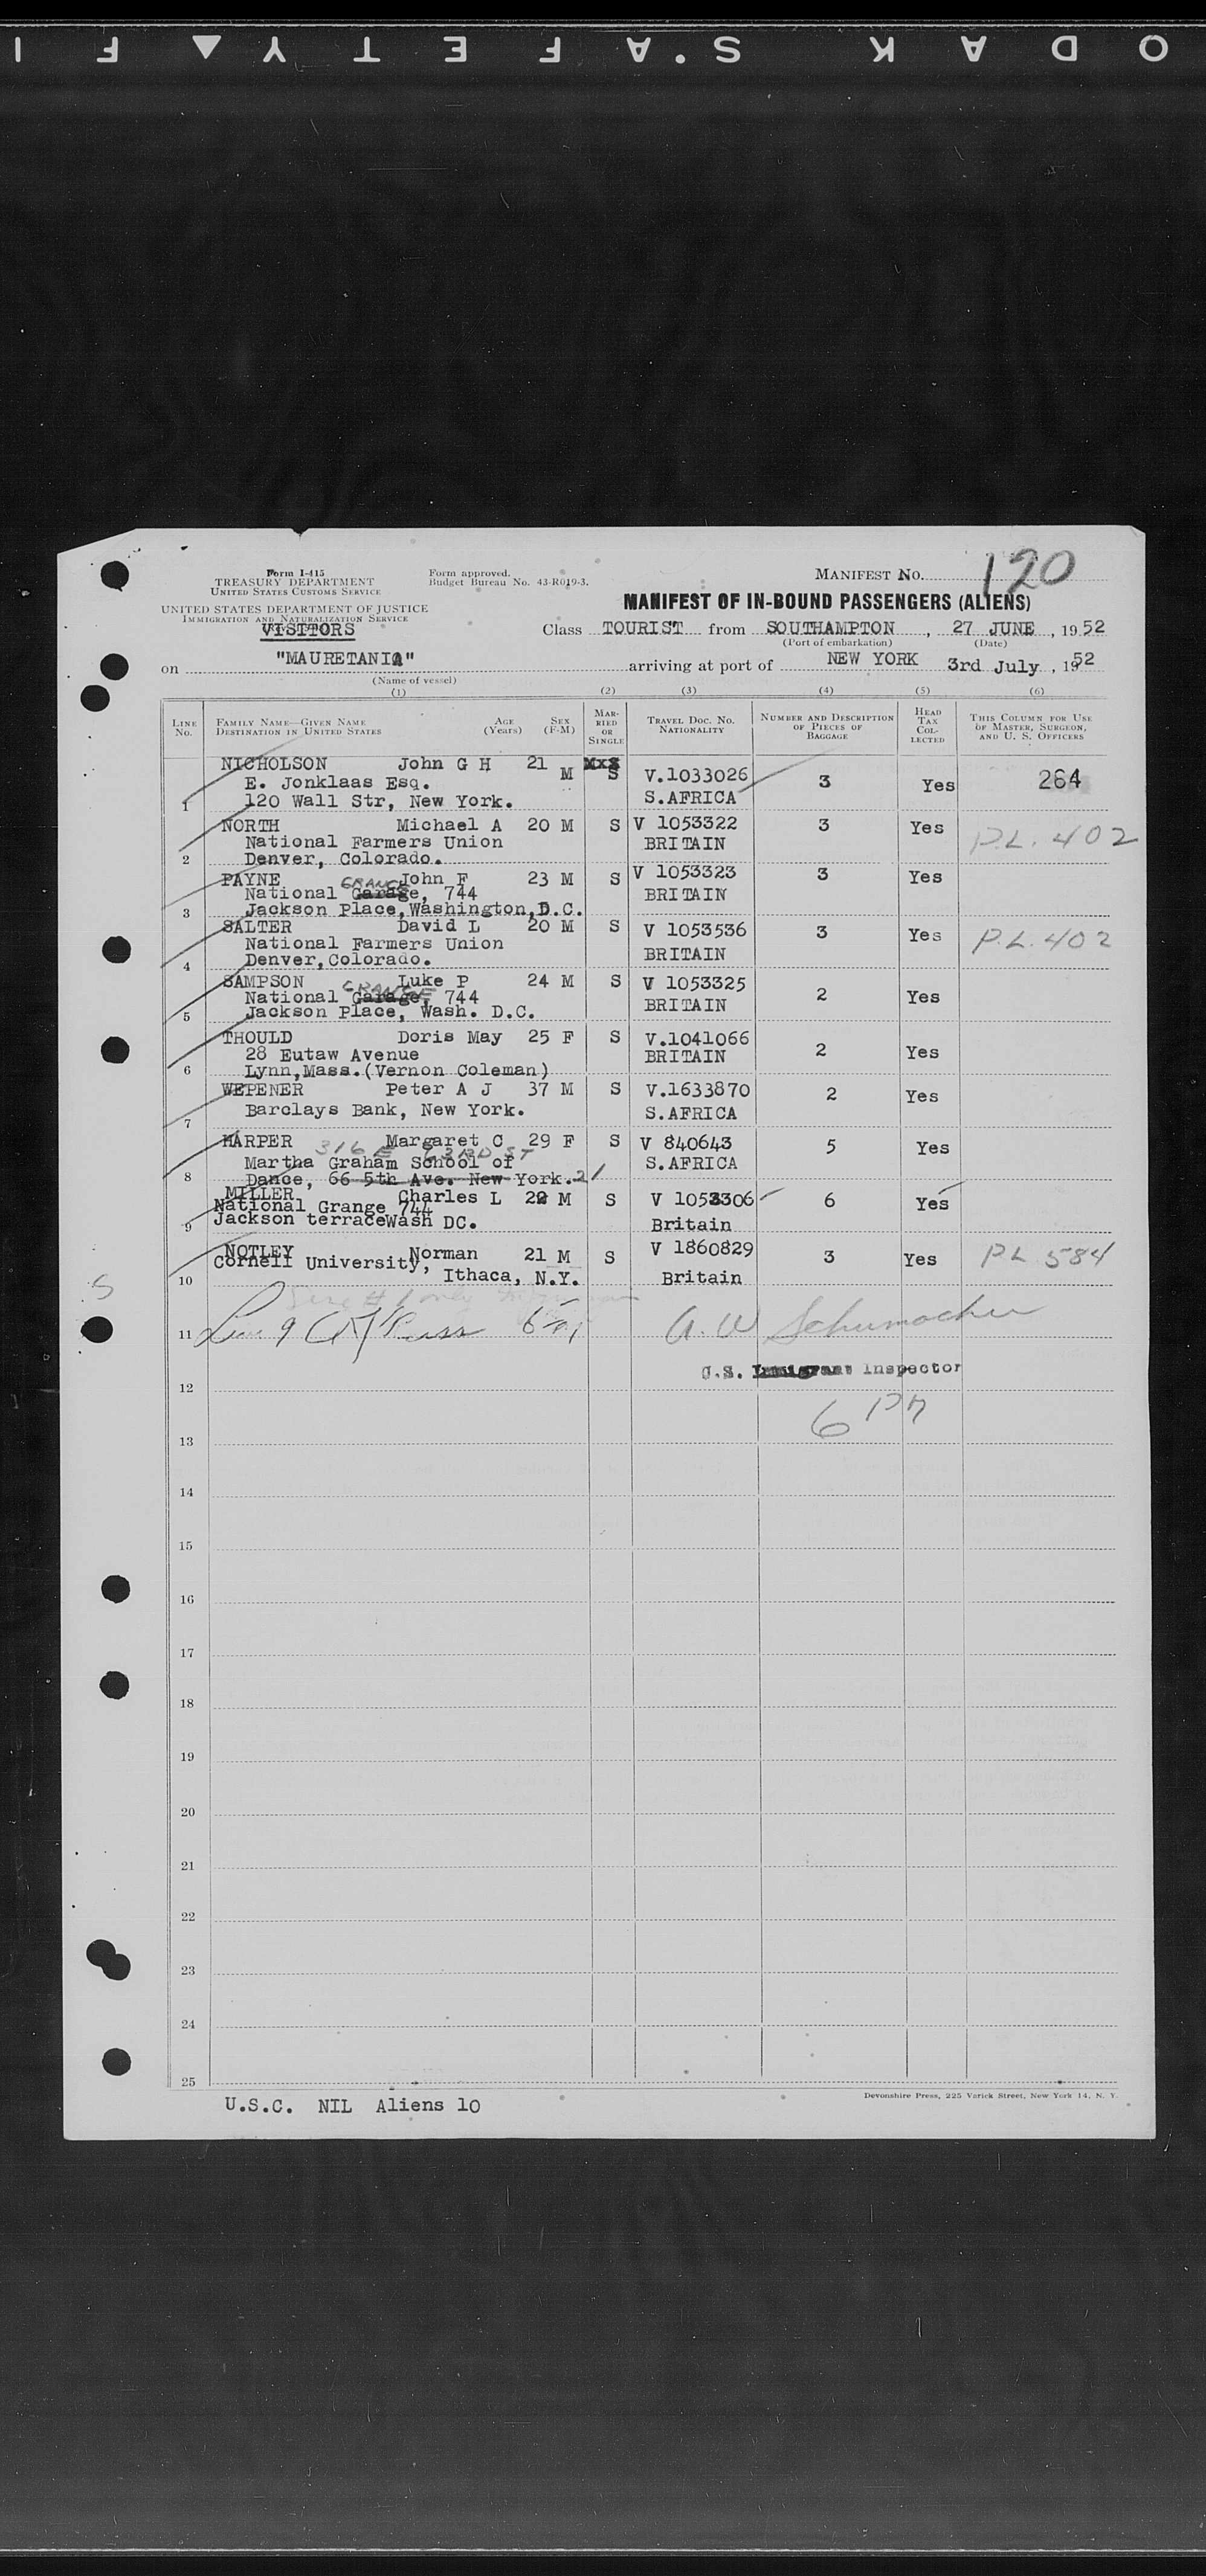 KODAK SAFETY FI
120
Form I-415
TREASURY DEPARTMENT
UNITED STATES CUSTOMS SERVICE
Form approved.
Budget Bureau No. 43-R019-3.
MANIFEST NO.
UNITED STATES DEPARTMENT OF JUSTICE
IMMIGRATION AND NATURALIZATION SERVICE
MANIFEST OF IN-BOUND PASSENGERS (ALIENS)
VISITORS
Class TOURIST from SOUTHAMPTON, 27 JUNE, 1952
(Port of embarkation) (Date)
on "MAURETANIA" arriving at port of NEW YORK 3rd July, 1952
(Name of vessel)
(1) (2) (3) (4) (5) (6)
LINE NO. FAMILY NAME—GIVEN NAME DESTINATION IN UNITED STATES AGE (Years) SEX (F-M) MARRIED OR SINGLE TRAVEL DOC. NO. NATIONALITY NUMBER AND DESCRIPTION OF PIECES OF BAGGAGE HEAD TAX COLLECTED THIS COLUMN FOR USE OF MASTER, SURGEON, AND U. S. OFFICERS
NICHOLSON John G H 21 M S V.1033026 3 Yes 264
E. Jonklaas Esq.
1 120 Wall Str, New York. S.AFRICA
NORTH Michael A 20 M S V 1053322 3 Yes P.L. 402
National Farmers Union BRITAIN
2 Denver, Colorado.
PAYNE John F 23 M S V 1053323 3 Yes
GRANGE
National Garage, 744 BRITAIN
3 Jackson Place, Washington, D.C.
SALTER David L 20 M S V 1053536 3 Yes P.L. 402
National Farmers Union BRITAIN
4 Denver, Colorado.
SAMPSON Luke P 24 M S V 1053325 2 Yes
GRANGE
National Garage, 744 BRITAIN
5 Jackson Place, Wash. D.C.
THOULD Doris May 25 F S V.1041066 2 Yes
28 Eutaw Avenue BRITAIN
6 Lynn, Mass. (Vernon Coleman)
WEPENER Peter A J 37 M S V.1633870 2 Yes
Barclays Bank, New York. S.AFRICA
7
HARPER Margaret C 29 F S V 840643 5 Yes
316 E 63RD ST
Martha Graham School of S.AFRICA
8 Dance, 66 5th Ave. New York. 21
MILLER Charles L 22 M S V 1053306 6 Yes
National Grange 744
9 Jackson terrace Wash DC. Britain
NOTLEY Norman 21 M S V 1860829 3 Yes P.L. 584
Cornell University,
10 Ithaca, N.Y. Britain
S
11 Line 9 A. W Schumacher
U.S. Immigrant Inspector
12
6
13
14
15
16
17
18
19
20
21
22
23
24
25
Devonshire Press, 225 Varick Street, New York 14, N. Y.
U.S.C. NIL Aliens 10